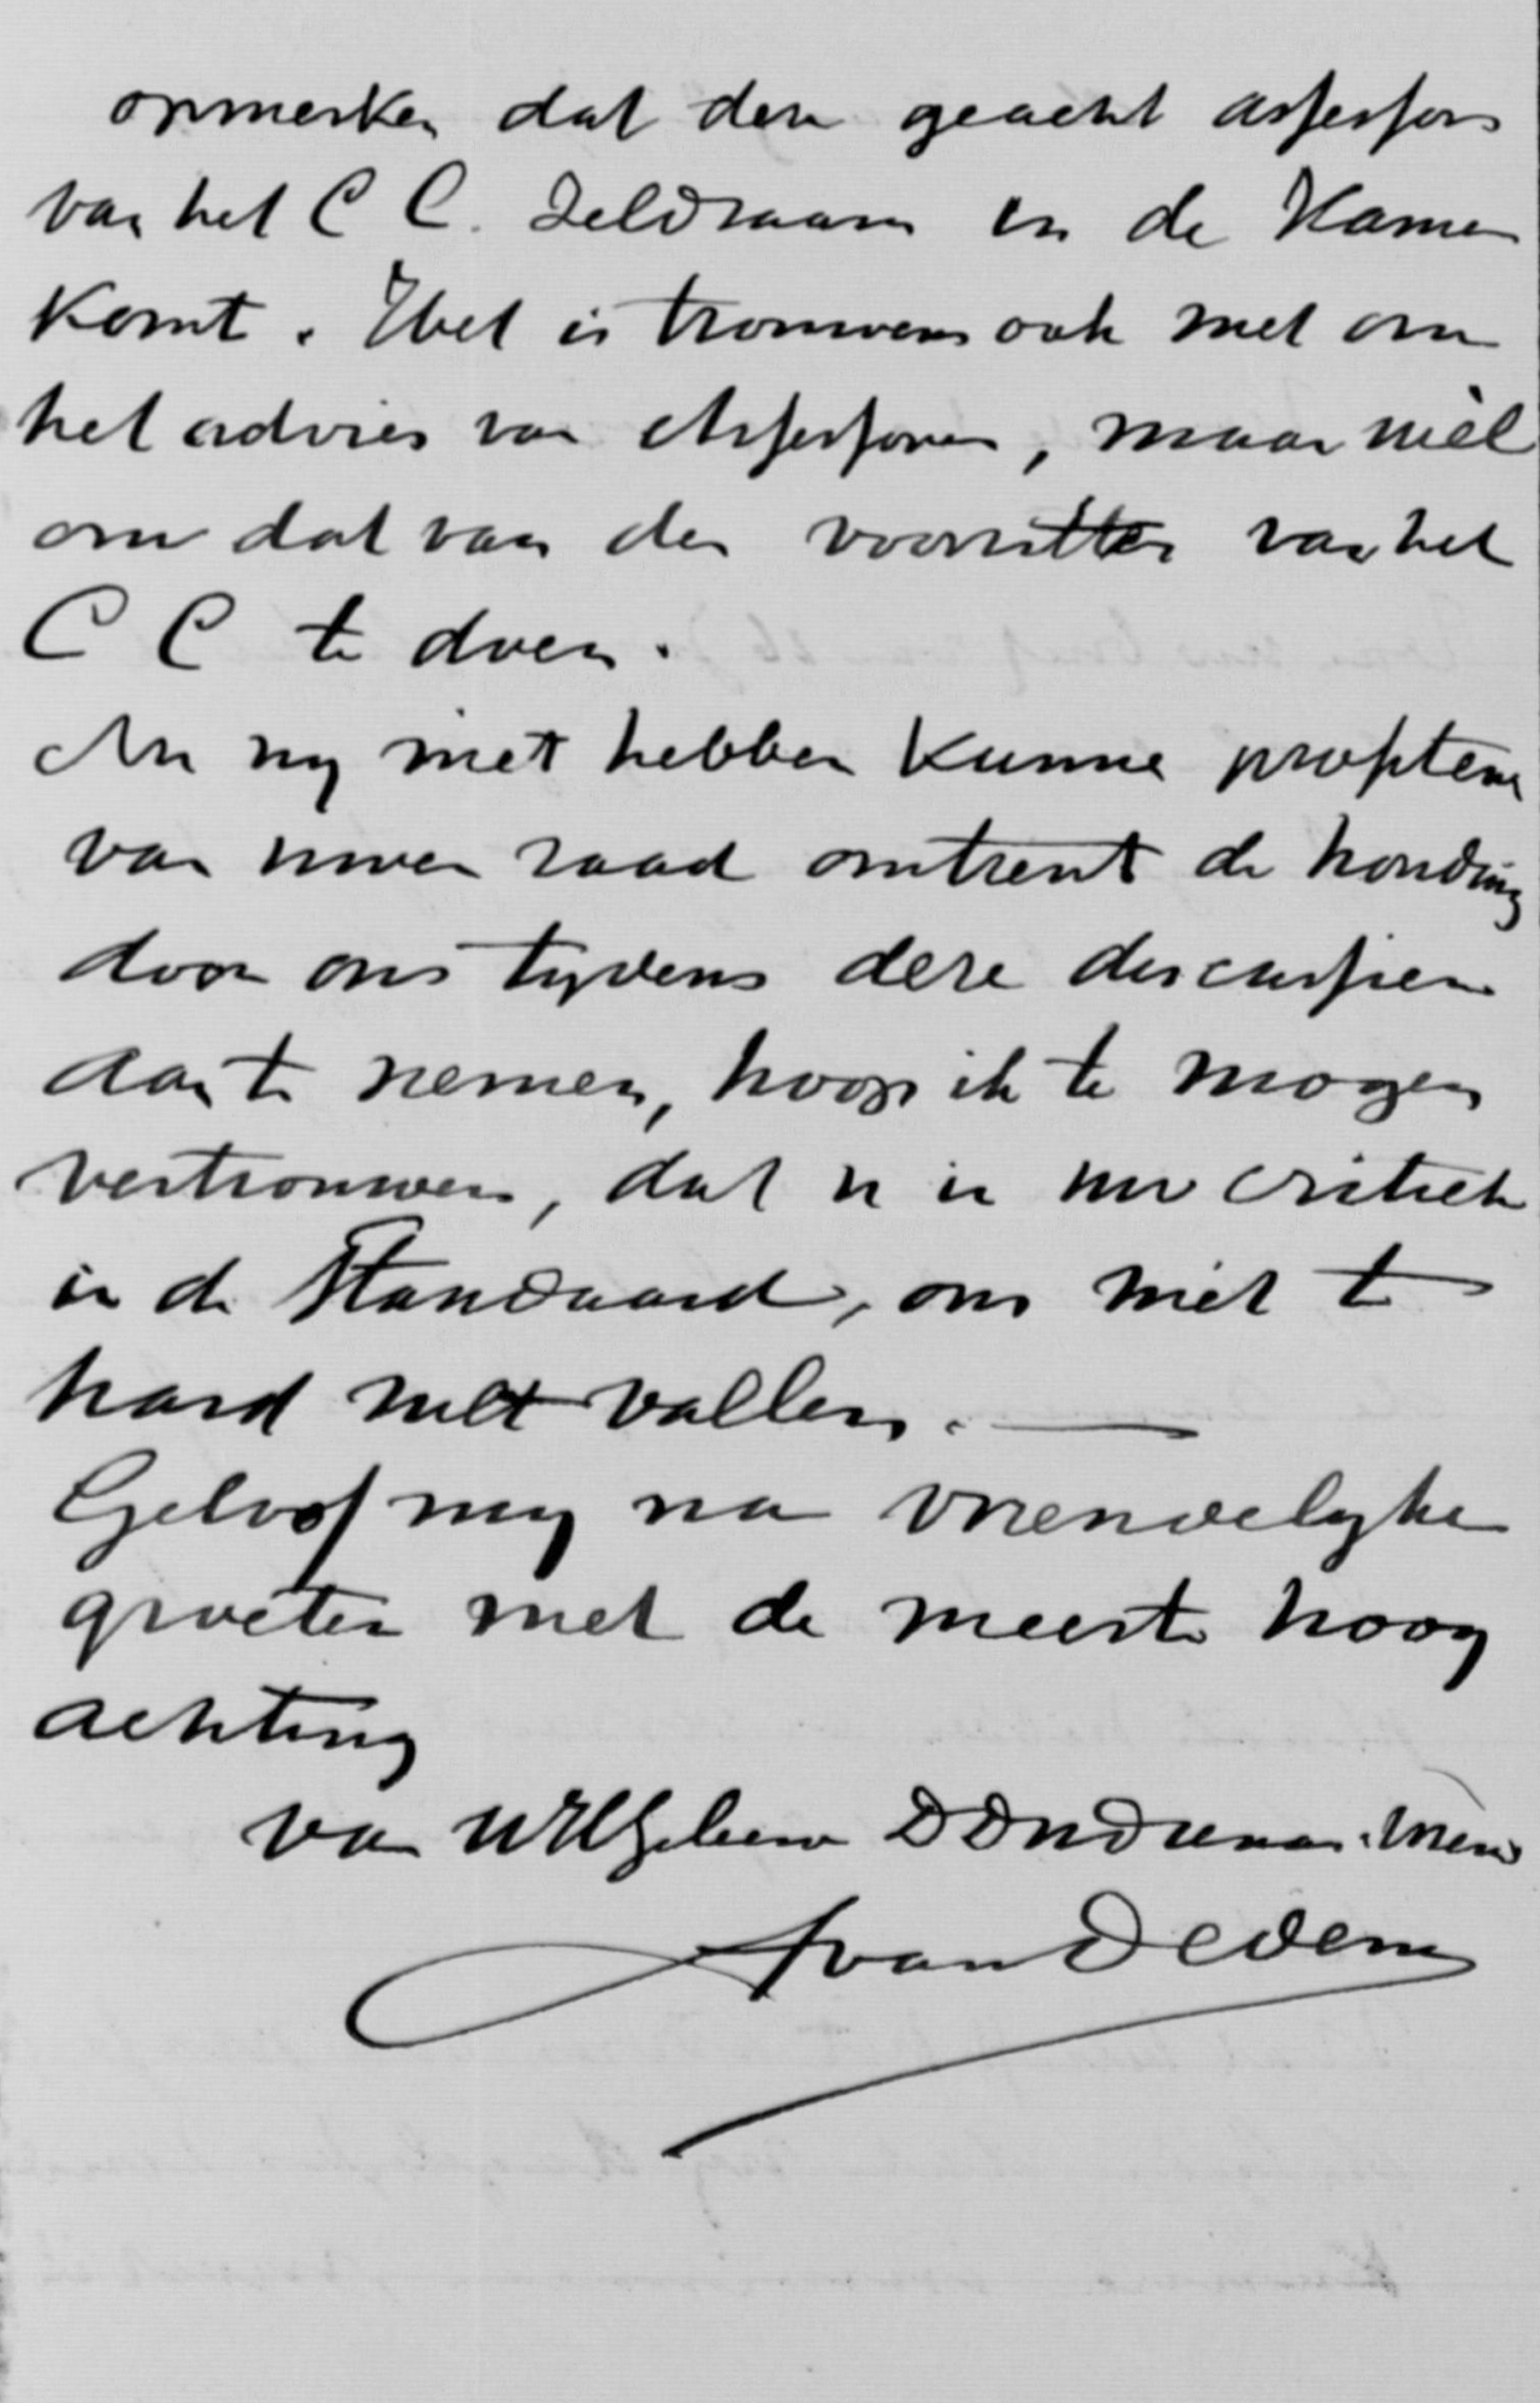 opmerken dat deze geacht assessor
van het C C. zeldzaam in de Kamer
komt. Het is trouwens ook niet om
het advies van Assessoren, maar wel
om dat van den voorzitter van het
C C te doen.
Nu wij niet hebben kunnen profiteren
van uwen raad omtrent de houding
door ons tijdens deze discussien
aan te nemen, hoop ik te mogen
vertrouwen, dat u in uw critiek
in de Standaard, ons niet te
hard zult vallen.
Geloof mij na vriendelijke
groeten met de meeste hoog
achting
van UHEdGeleerde Dw Dienaar
AvanDedem